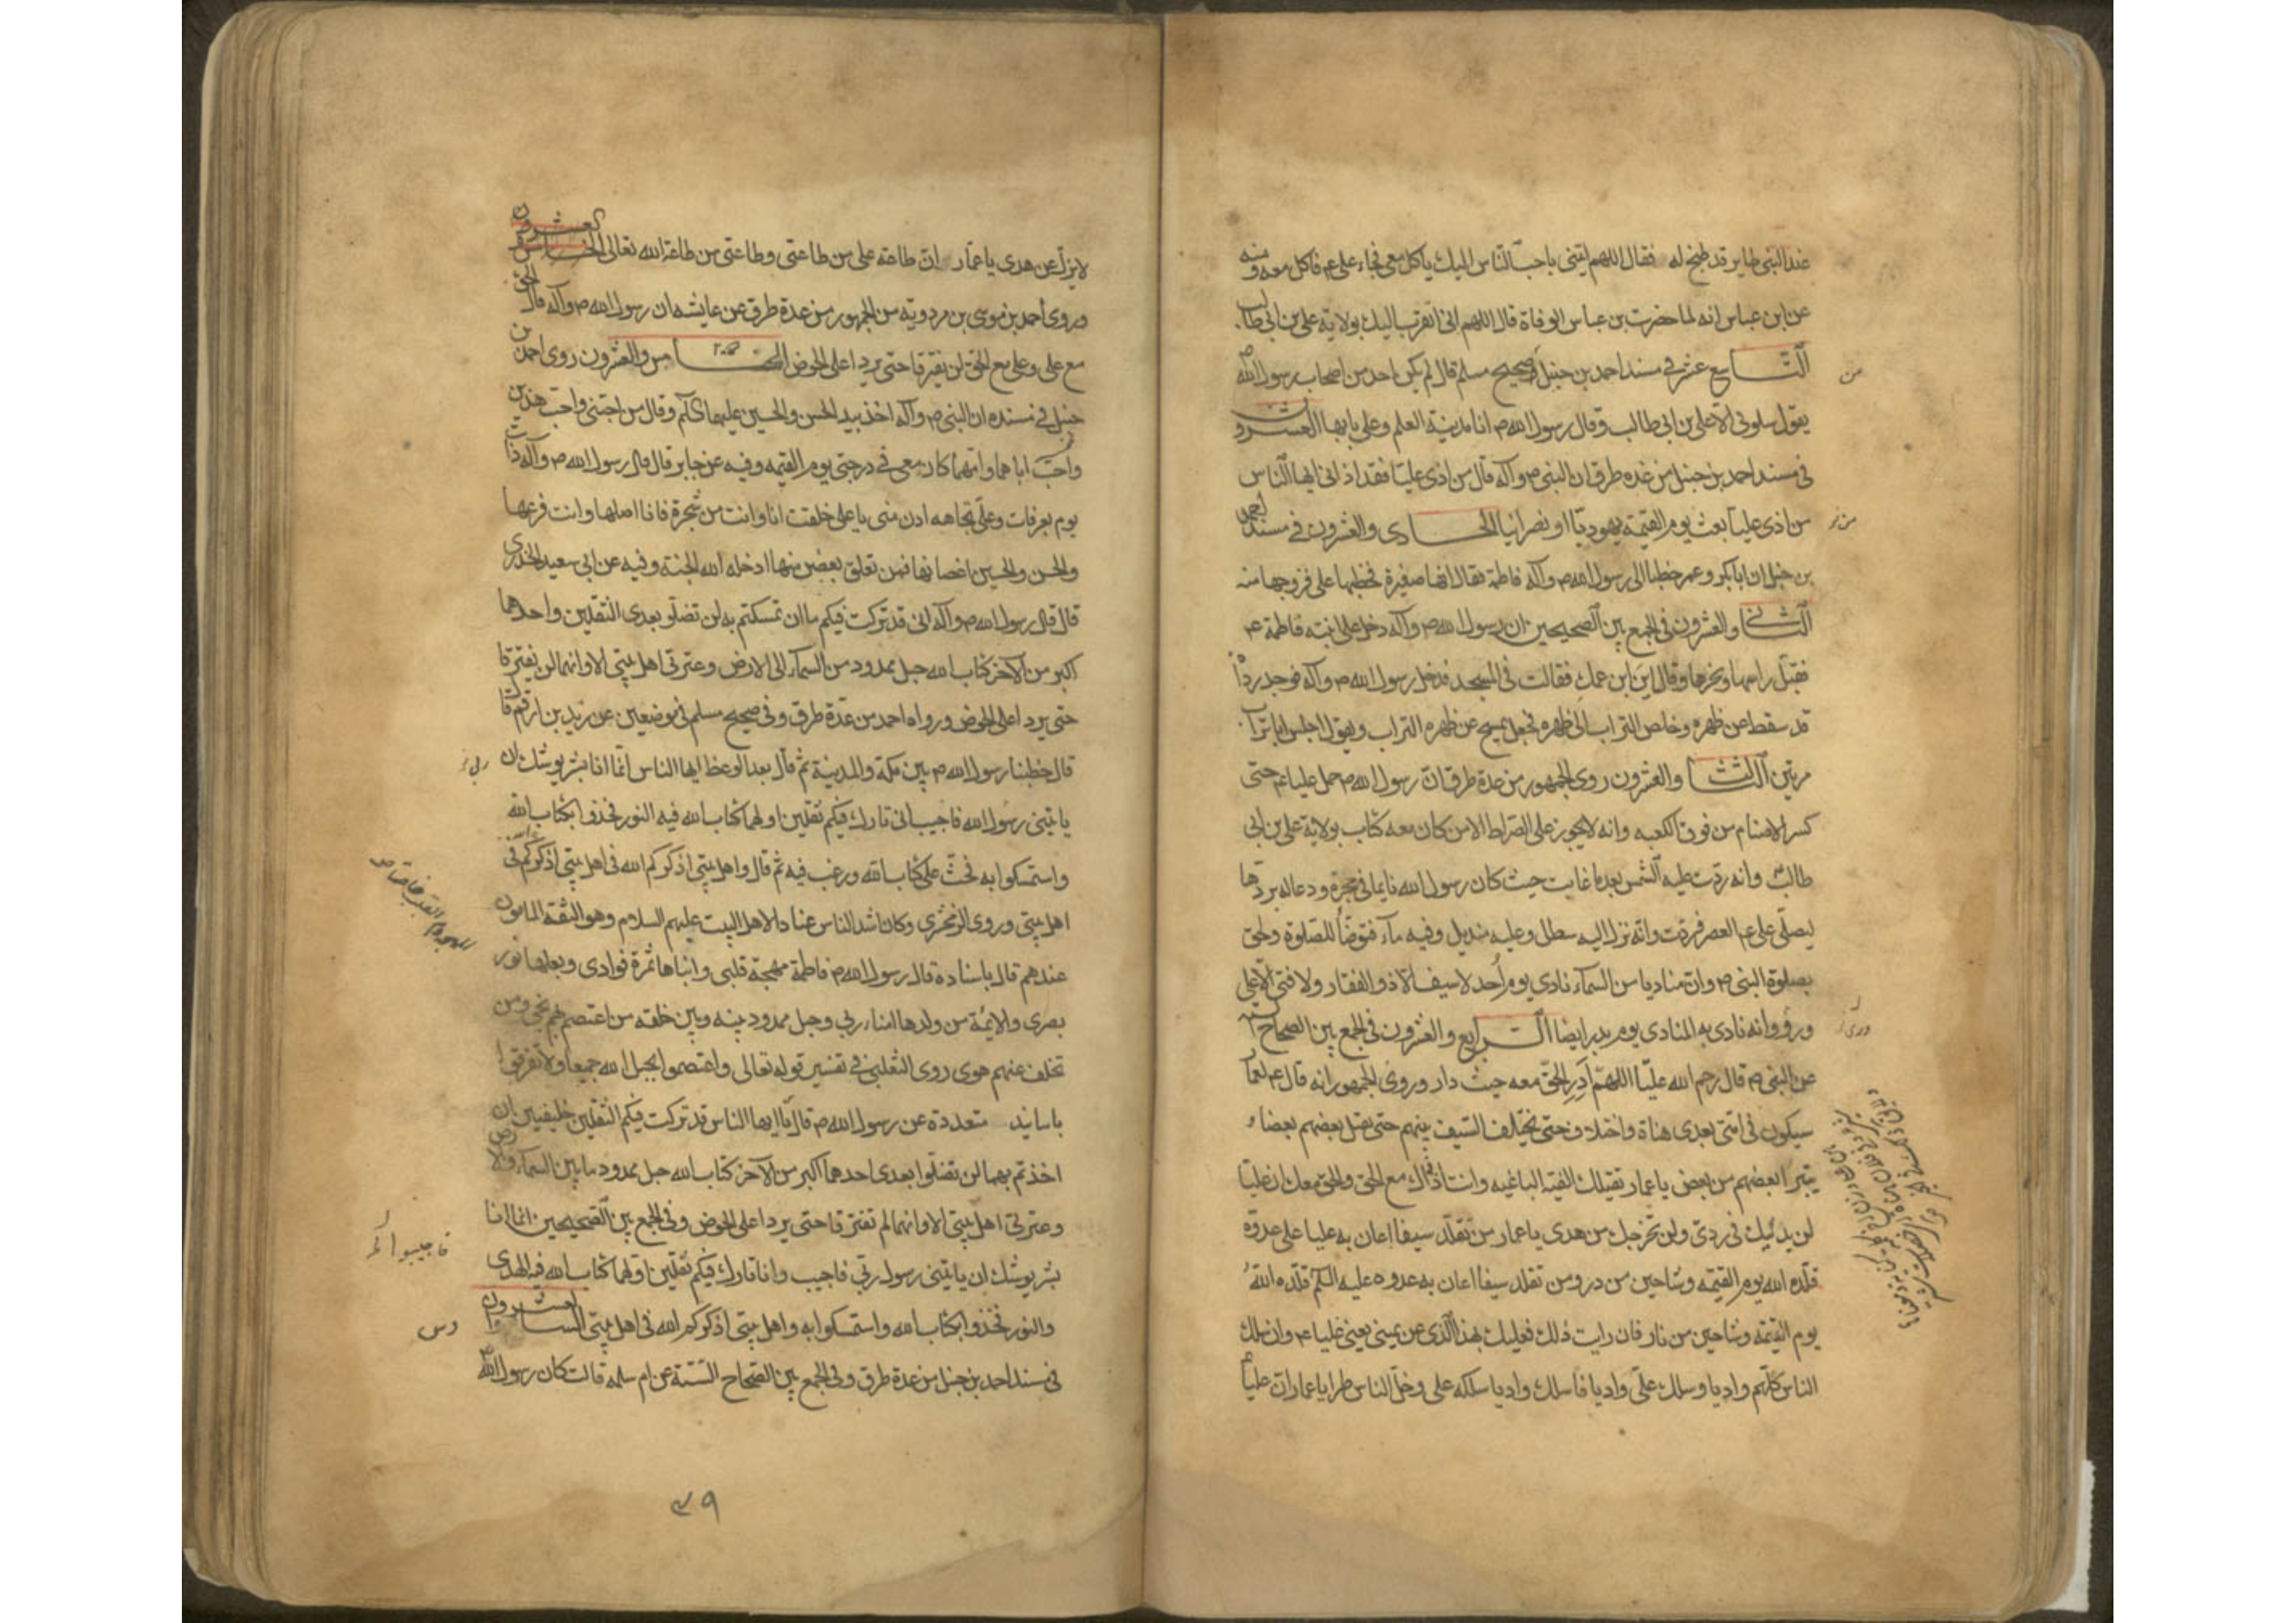 عند النبى طاير قد طبخ له فقال اللهم ايتنى باحب الناس اليك ياكل معى فجاء على ع م فاكل معه ومنه
عن ابن عباس انه لما حضرت بن عباس الوفاة قال اللهم انى اتقرب اليك بولاية على بن ابى طالب
التاسع عشر فى مسند احمد بن حنبل وصحيح مسلم قال لم يكن احد من اصحاب رسول الله ص
يقول سلونى الا على بن ابى طالب وقال رسول الله ص انا مدينة العلم وعلى بابها العشرون
فى مسند احمد بن حنبل من عدة طرق ان النبى ص وآله قال من اذى عليا فقد اذانى ايها الناس
من اذى عليا بعث يوم القيمة يهوديا او نصرانيا الحادى والعشرون فى مسند احمد
بن حنبل ان ابا بكر وعمر خطبا الى رسول الله ص وآله فاطمة فقال انها صغيرة فخطبها على فزوجها منه
الثانى والعشرون فى الجمع بين الصحيحين ان رسول الله ص وآله دخل على ابنته فاطمة ع م
فقبل راسها ونحرها وقال اين ابن عمك فقالت فى المسجد فدخل رسول الله ص وآله فوجد رداه
قد سقط عن ظهره وخلص التراب الى ظهره فجعل يمسح عن ظهره التراب ويقول اجلس ابا تراب
مرتين الثالث والعشرون روى الجمهور من عدة طرق ان رسول الله ص حمل عليا ع م حتى
كسر الاصنام من فوق الكعبه وانه لا يجوز على الصراط الا من كان معه كتاب بولاية على بن ابى
طالب وانه ردت عليه الشمس بعد ما غابت حيث كان رسول الله نايما فى حجره ودعا له بردها
ليصلى على ع م العصر فردت وانه نزل اليه سطل وعليه منديل وفيه مآء فتوضأ للصلوة ولحق
بصلوة النبى ص وان مناديا من السمآء نادى يوم أحد لا سيف الا ذو الفقار ولا فتى الا على
وروو انه نادى به المنادى يوم بدر ايضا الرابع والعشرون فى الجمع بين الصحاح الستة
عن النبى ص قال رحم الله عليا اللهم أدر الحق معه حيث دار وروى الجمهور انه قال ع م لعمار
سيكون فى امتى بعدى هناة واختلاف حتى يختلف السيف بينهم حتى يقتل بعضهم بعضا و
يتبرا بعضهم من بعض يا عمار تقتلك الفية الباغيه وانت اذ ذاك مع الحق والحق معك ان عليا
لن يدليك فى ردى ولن يخرجك من هدى يا عمار من تقلد سيفا اعان به عليا على عدوه
قلده الله يوم القيمة وشاحين من در ومن تقلد سيفا اعان به عدوه عليه السلم قلده الله
يوم القيمة وشاحين من نار فان رايت ذلك فعليك بهذا الذى عن يمينى يعنى عليا ع م وان سلك
الناس كلهم واديا وسلك على واديا فاسلك واديا سلكه على وخل الناس طرا يا عمار ان عليا
من
ورى
لا يزل عن هدى يا عمار ان طاعة على من طاعتى وطاعتى من طاعة الله تعالى الخامس والعشرون
وروى احمد بن موسى بن مردويه من الجمهور من عدة طرق عن عايشه ان رسول الله ص وآله قال الحق
مع على وعلى مع الحق لن يفترقا حتى يردا على الحوض الخامس والعشرون روى احمد بن
حنبل فى مسنده ان النبى ص وآله اخذ بيد الحسن والحسين عليهما السلم وقال من احبنى واحب هذين
واحب اباهما وامهما كان معى فى درجتى يوم القيمه وفيه عن جابر قال قال رسول الله ص وآله ذات
يوم بعرفات وعلى تجاهه ادن منى يا على خلقت انا وانت من شجرة فانا اصلها وانت فرعها
والحسن والحسين اغصانها فمن تعلق بغصن منها ادخله الله الجنة وفيه عن ابى سعيد الخدرى
قال قال رسول الله ص وآله انى قد تركت فيكم ما ان تمسكتم به لن تضلو بعدى الثقلين واحدهما
اكبر من الآخر كتاب الله حبل ممدود من السمآء الى الارض وعترتى اهل بيتى الا وانهما لن يفترقا
حتى يردا على الحوض ورواه احمد من عدة طرق وفى صحيح مسلم فى موضعين عن زيد بن ارقم قا
قال خطبنا رسول الله ص بين مكة والمدينة ثم قال بعد الوعظ ايها الناس انما انا بشر يوشك ان
ياتينى رسول الله فاجيب انى تارك فيكم ثقلين اولهما كتاب الله فيه النور فخذوا بكتاب الله
واستمسكوا به فحث على كتاب الله ورغب فيه ثم قال واهل بيتى اذكركم الله فى اهل بيتى اذكركم الله فى
اهل بيتى وروى الزمخشرى وكان اشد الناس عنادا لاهل البيت عليهم السلام وهو الثقة المامون
عندهم قال باسناده قال رسول الله ص فاطمة مهجة قلبى وابناها ثمرة فوادى وبعلها نور
بصرى والايمة من ولدها امناء ربى وحبل ممدود بينه وبين خلقه من اعتصم بهم نجى ومن
تخلف عنهم هوى روى الثعلبى فى تفسير قوله تعالى واعتصموا بحبل الله جميعا ولا تفرقوا
باسانيد متعددة عن رسول الله ص قال يا ايها الناس قد تركت فيكم الثقلين خليفتين ان
اخذتم بهما لن تضلوا بعدى احدهما اكبر من الآخر كتاب الله حبل ممدود ما بين السمآء والارض
وعترتى اهل بيتى الا وانهما لم تفترقا حتى يردا على الحوض وفى الجمع بين الصحيحين انما انا
بشر يوشك ان ياتينى رسول ربى فاجيب وانا تارك فيكم ثقلين اولهما كتاب الله فيه الهدى
والنور فخذوا بكتاب الله واستمسكوا به واهل بيتى اذكركم الله فى اهل بيتى السادس والعشرون
فى مسند احمد بن حنبل من عدة طرق وفى الجمع بين الصحاح الستة عن ام سلمه قالت كان رسول الله ص
ربى
فاجيبوا
دس